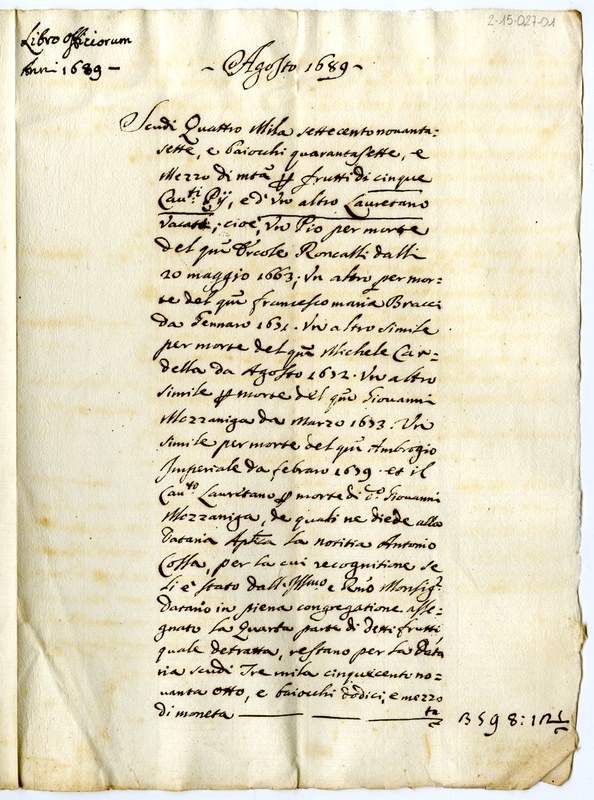 2-15-027-01
Libro officiorum
Anni 1689 -
- Agosto 1689 -
Scudi Quattro Mila settecentonouanta:
sette, e baiocchi quarantasette, e
Mezzo di mta p frutti di cinque
Cau.ti Pij, e d'Vn altro Lauretano
vacati; cioè, Vn Pio per morte
del qm Ercole Roncalli dalli
20 maggio 1663; Vn altro per mor:
te del qm francesco maria Bracci
da Gennaro 1631. Vn altro simile
per morte del qm Michele Car=
della da Agosto 1632. Vn altro
simile p morte del qm Giouanni
Mozzaniga da Marzo 1633. Vn
simile per morte del qm Ambrogio
Imperiale da febraro 1639. et il
Cau.ro Lauretano p morte di d.o Giouanni
Mozzaniga, de quali ne diede alla
Dataria Aplica la notitia Antonio
Costa, per la cui recognitione se
li è stato dall' Illmo e Rmo Monsig.r
Datario in piena congregatione asse:
gnato la Quarta parte di detti frutti,
quale detratta, restano per la Data
ria scudi Tre mila cinquecento no:
uanta otto, e baiocchi dodici, e mezzo
di moneta
3598:12½